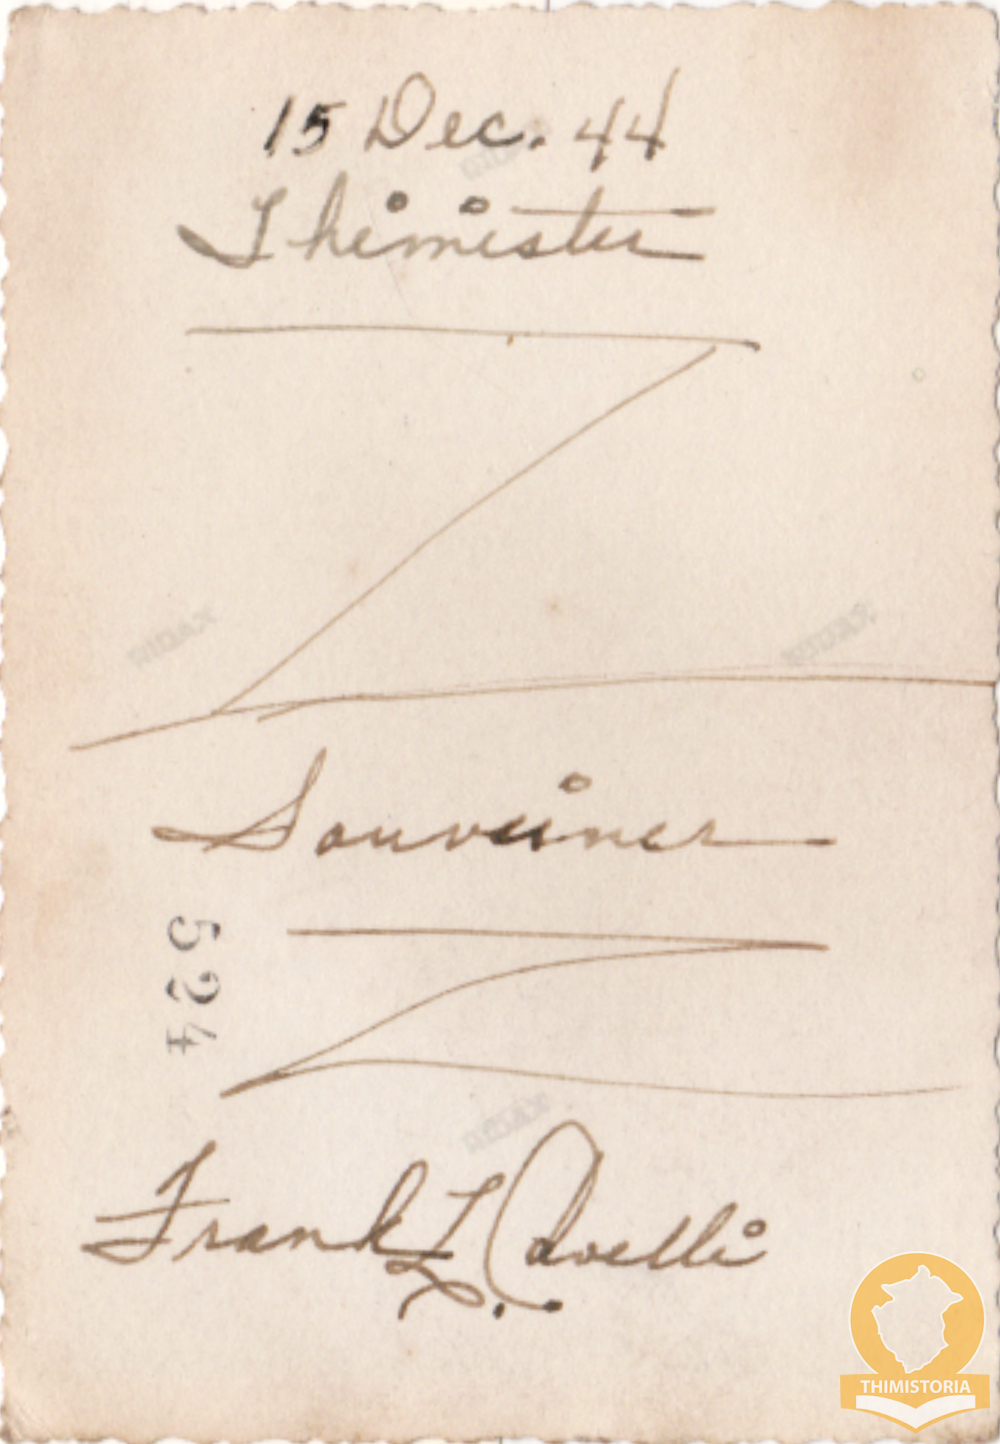 15 Dec. 44
Thimister
Souveiner
524
Frank L. Avelli
THIMISTORIA